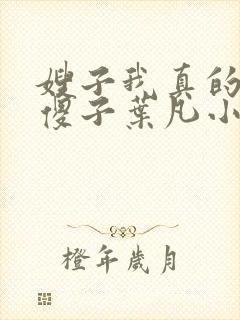 嫂子我真的
傻子葉凡小
橙年歲月